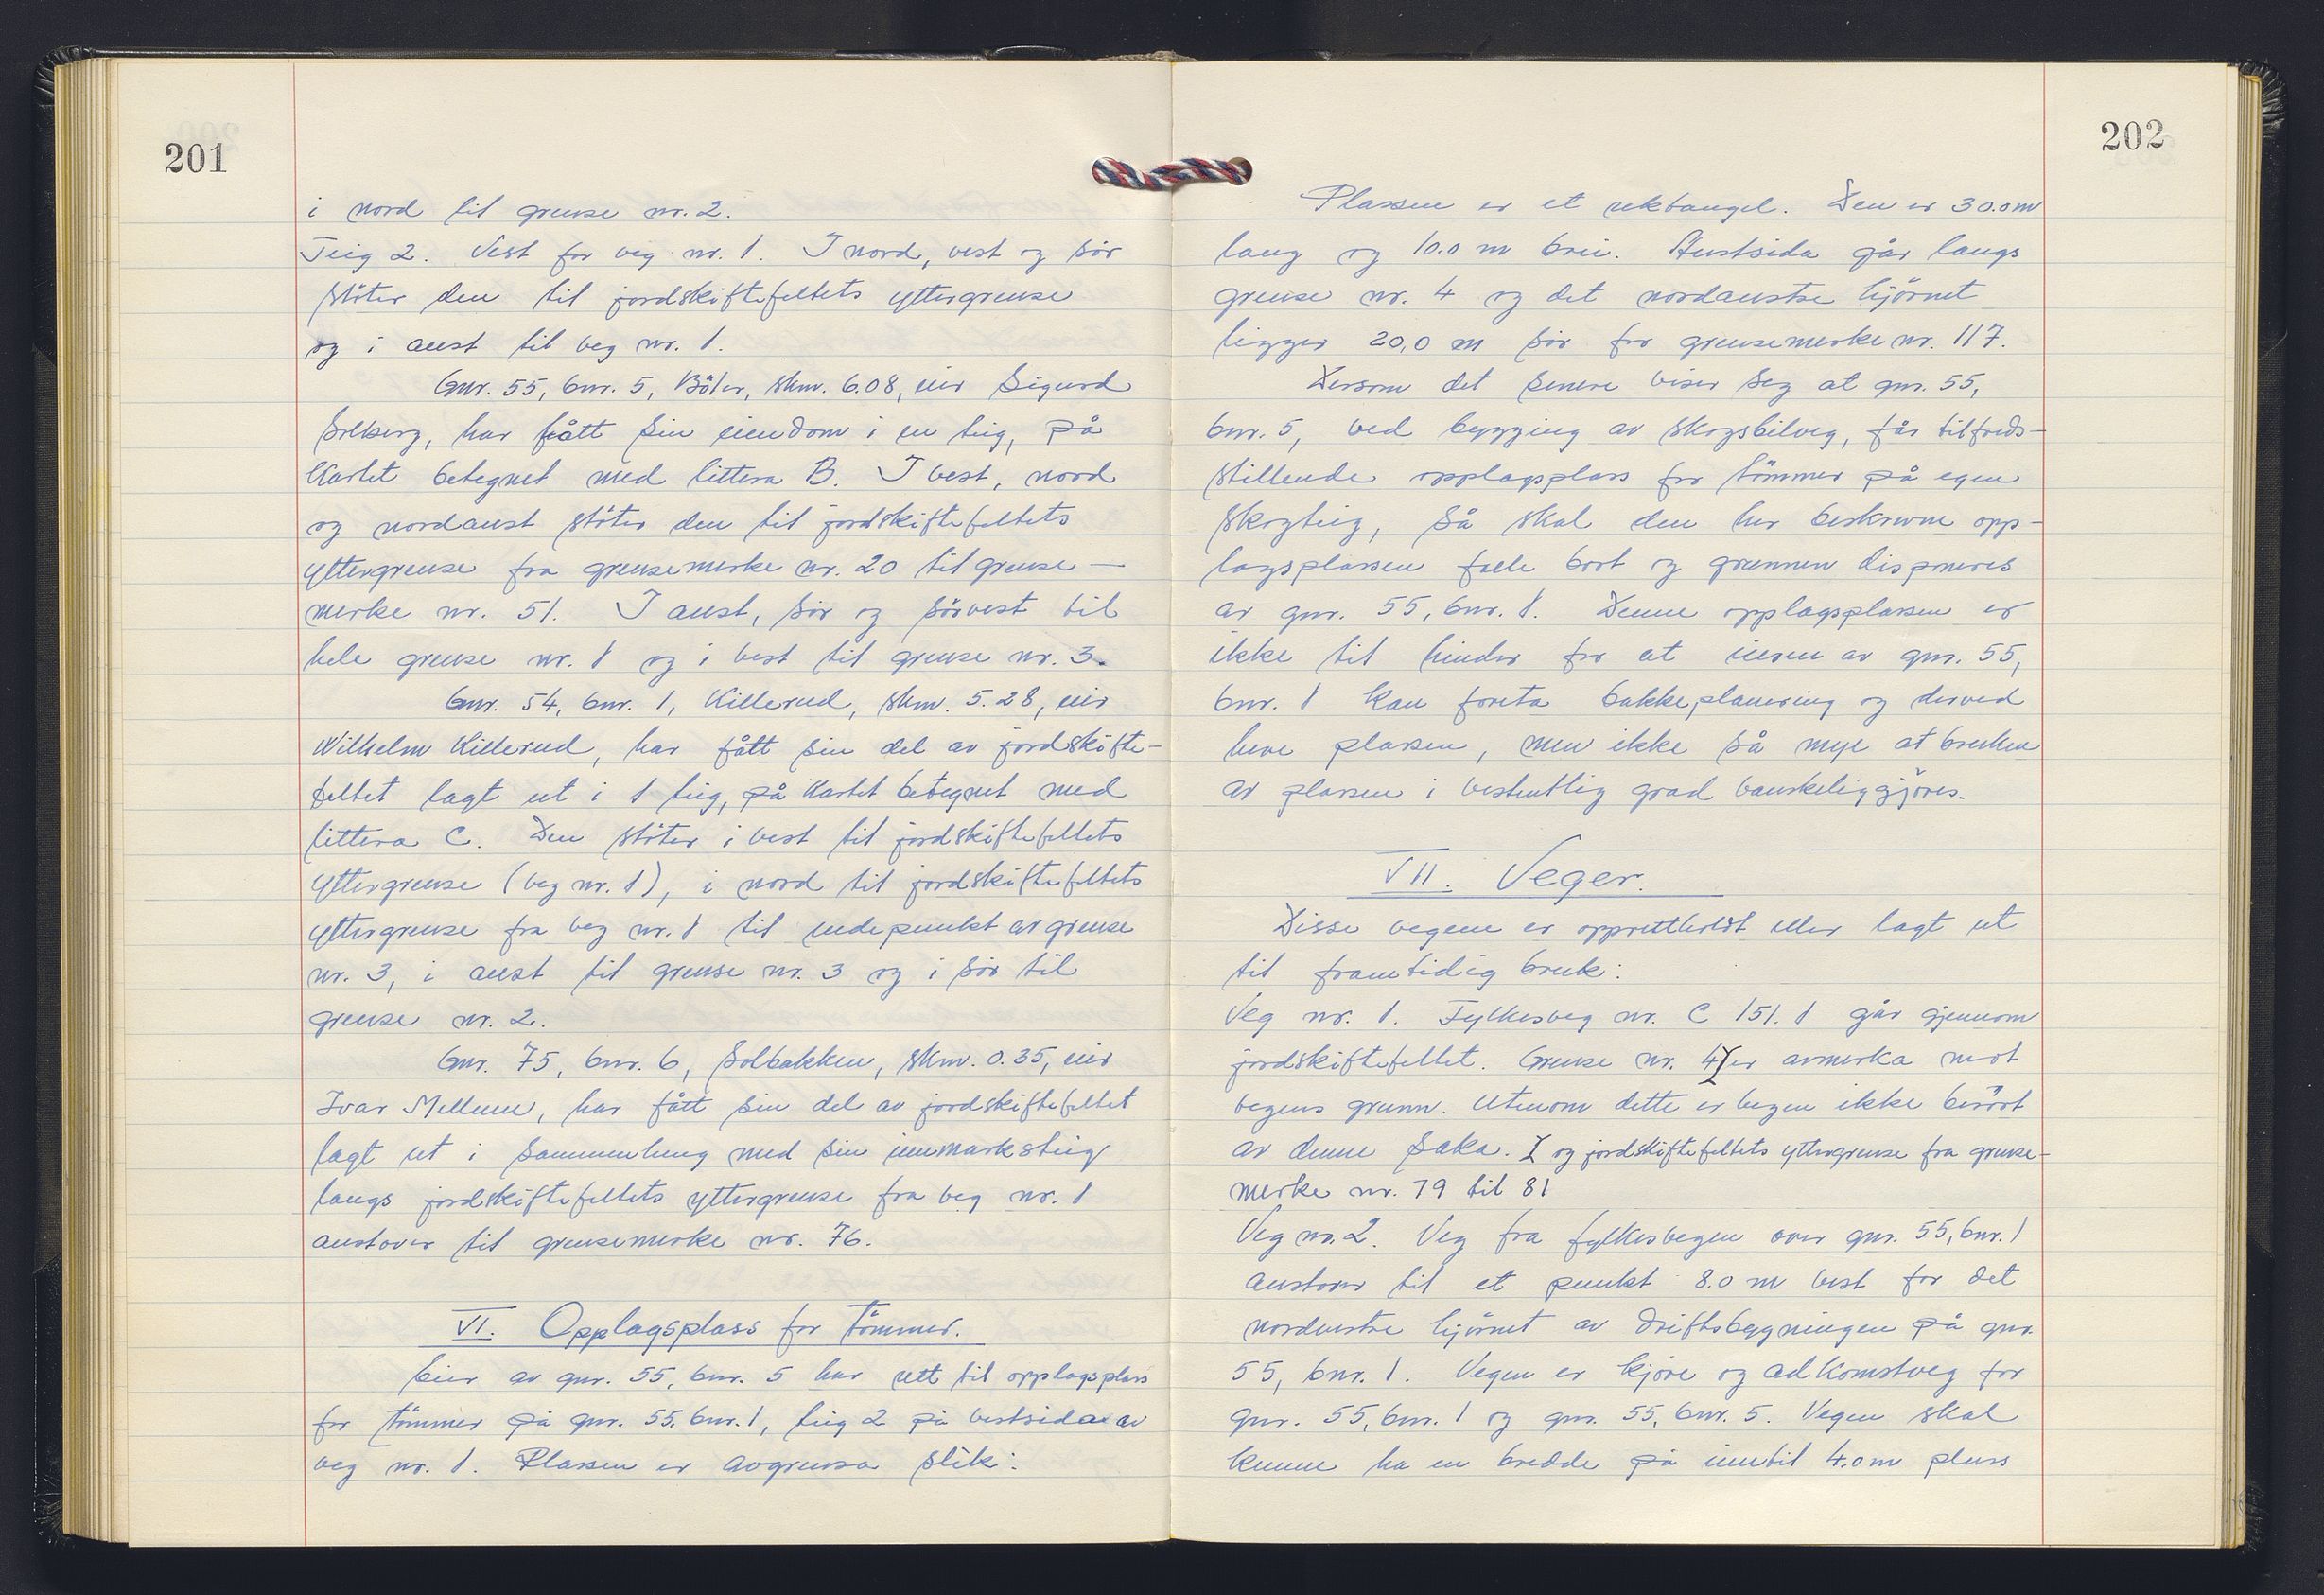 201
i nord til grense nr. 2.
Teig 2. Vest for veg nr. 1. I nord, vest og sör
stöter den til jordskiftefeltets yttergrense
og i aust til veg nr. 1.
Gnr. 55, bnr. 5, Böler, skm. 6.08, eier Sigurd
Solberg, har fått sin eiendom i en teig, på
kartet betegnet med littera B. I vest, nord
og nordaust stöter den til jordskiftefeltets
yttergrense fra grensemerke nr. 20 til grense-
merke nr. 51. I aust, sör og sörvest til
hele grense nr. 1 og i vest til grense nr. 3.
Gnr. 54, bnr. 1, Killerud, skm. 5.28, eier
Wilhelm Killerud, har fått sin del av jordskifte-
feltet lagt ut i 1 teig, på kartet betegnet med
littera C. Den stöter i vest til jordskiftefeltets
yttergrense (veg nr. 1), i nord til jordskiftefeltets
yttergrense fra veg nr. 1 til endepunkt av grense
nr. 3, i aust til grense nr. 3 og i sör til
grense nr. 2.
Gnr. 75, bnr. 6, Solbakken, skm. 0.35, eier
Ivar Mellem, har fått sin del av jordskiftefeltet
lagt ut i sammenheng med sin innmarksteig
langs jordskiftefeltets yttergrense fra veg nr. 1
austover til grensemerke nr. 76.
VI. Opplagsplass for tömmer.
Eier av gnr. 55, bnr. 5 har rett til opplagsplass
for tömmer på gnr. 55, bnr. 1, teig 2 på vestsida av
veg nr. 1. Plassen er avgrensa slik:
202
Plassen er et rektangel. Den er 30.0 m
lang og 10.0 m brei. Austsida går langs
grense nr. 4 og det nordaustre hjörnet
ligger 20,0 m sör for grensemerke nr. 117.
Dersom det senere viser seg at gnr. 55,
bnr. 5, ved bygging av skogsbilveg, får tilfreds-
stillende opplagsplass for tömmer på egen
skogteig, så skal den her beskrevne opp-
lagsplassen falle bort og grunnen disponeres
av gnr. 55, bnr. 1. Denne opplagsplassen er
ikke til hinder for at eieren av gnr. 55,
bnr. 1 kan foreta bakkeplanering og derved
heve plassen, men ikke så mye at bruken
av plassen i vesentlig grad vanskeliggjöres.
VII. Veger.
Disse vegene er opprettholdt eller lagt ut
til framtidig bruk:
Veg nr. 1. Fylkesveg nr. C 151.1 går gjennom
jordskiftefeltet. Grense nr. 4 ⌈ er avmerka mot
vegens grunn. Utenom dette er vegen ikke berört
av denne saka. ⌈ og jordskiftefeltets yttergrense fra grense-
merke nr. 79 til 81
Veg nr. 2. Veg fra fylkesvegen over gnr. 55, bnr. 1
austover til et punkt 8.0 m vest for det
nordvestre hjörnet av driftsbygningen på gnr.
55, bnr. 1. Vegen er kjöre og adkomstveg for
gnr. 55, bnr. 1 og gnr. 55, bnr. 5. Vegen skal
kunne ha en bredde på inntil 4.0 m pluss